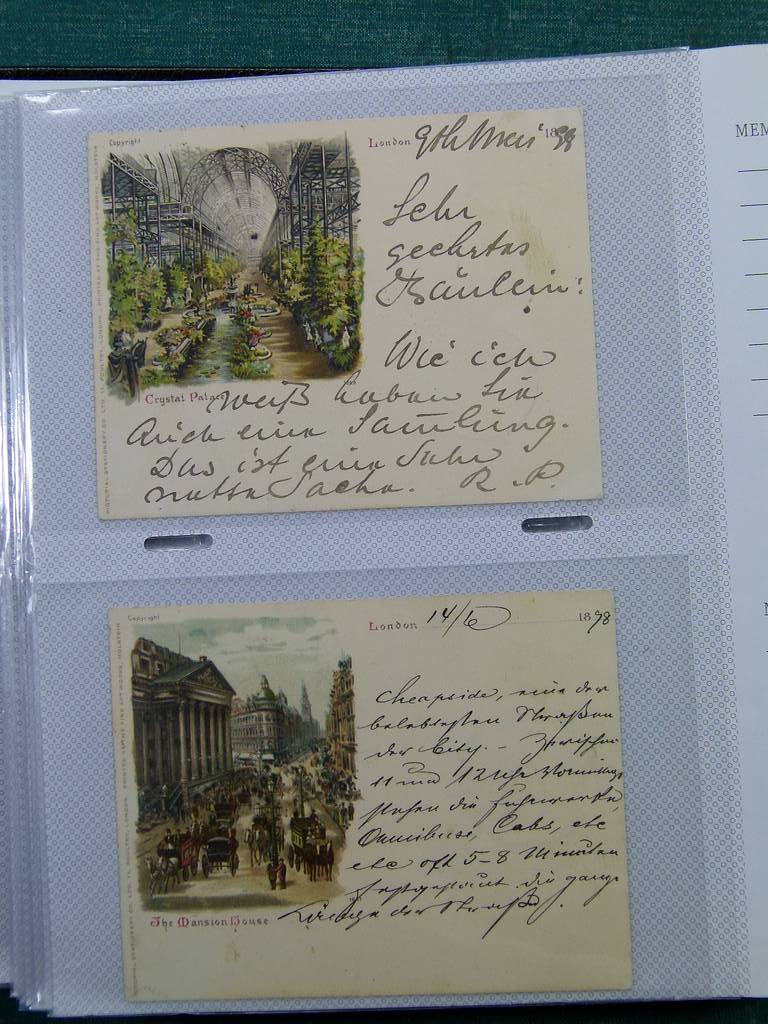 Copyright
London 9th Mai 1898
Sehr
geehrtes
Fräulein:
Wie ich
Crystal Palace
weiß haben Sie
Auch eine Samlung.
Das ist eine Sehr
nette Sache. R. P.
MEM
Copyright
London 14/6 1898
Cheapside, eine der
belebtesten Straßen
der City. – Zwischen
11 und 12 Uhr Vormittags
stehen die Fuhrwerke,
Omnibuse, Cabs, etc
etc oft 5–8 Minuten
festgestaut die ganze
The Mansion House
Länge der Straße.